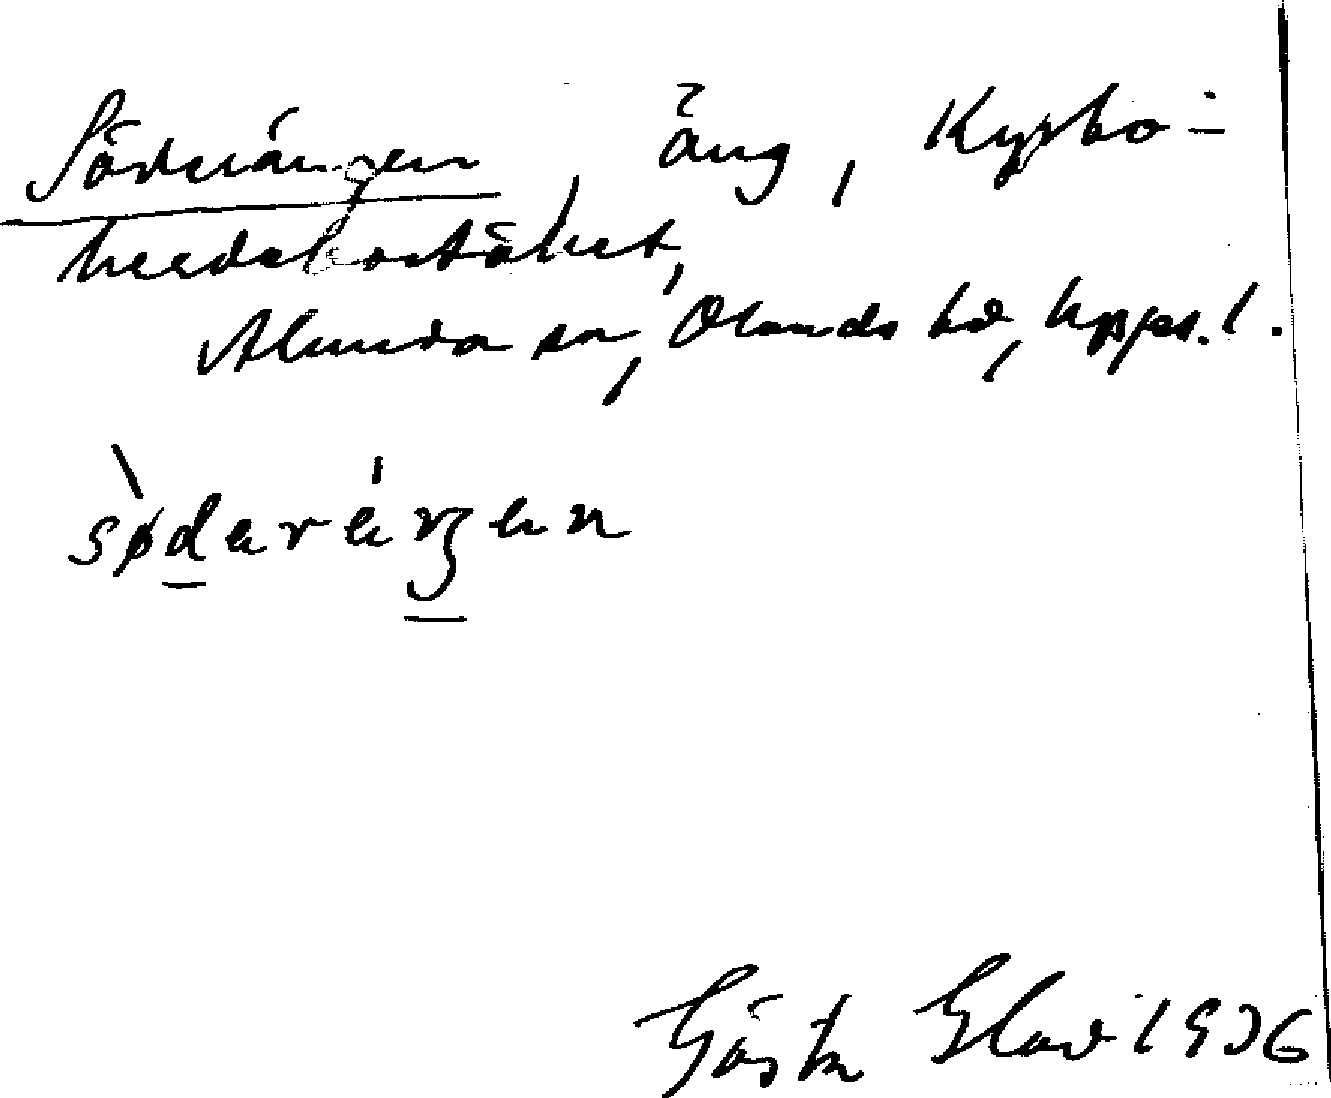 Söderängen, äng, Kyrko-
herdebostället,
Alunda sn, Olands hd, Upps. l.
sødereŋen
Gösta 1936